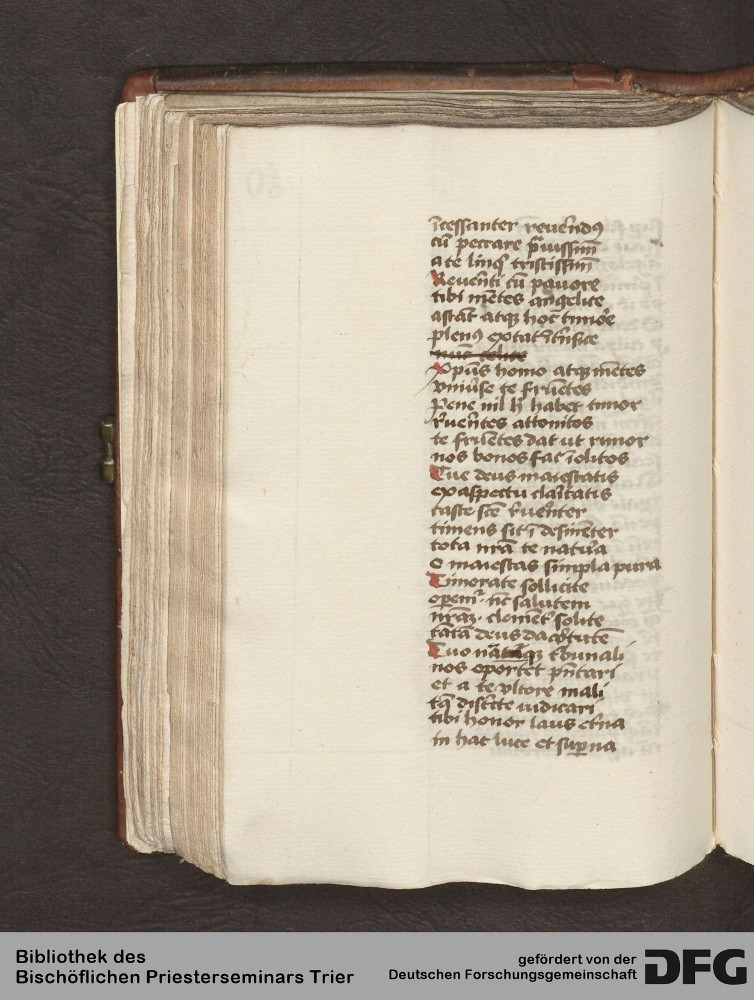 īcessanter reuerēdꝰ
cū peccare p̄uissim̄
a te linq̄ tristissim̄
Reuerēti cū pauore
tibi mētes angelice
astāt atqꝫ hoc timōe
plenꝰ extat ītrīsice
Xp̄us homo atqꝫ mētes
vniūse te fruētes
Pene nil hꝰ habet timor
r̄uerētes attonitos
te fruētes dat ut rimor
nos bonos fac īolitos
Tue deus maiestatis
ex aspectu claritatis
caste sc̄e r̄uerēter
timens sit ī desinēter
tota nrā te natura
O maiestas simpla pura
Timorate sollicite
operem̄ nc̄ salutem
nrāꝫ clemēt solite
tātā deus da v̄tutē
Tuo tribunali
nos oportet p̄ntari
et a te vltore mali
tā discrete iudicari
tibi honor laus etna
in hac luce et suꝑna
Bibliothek des
Bischöflichen Priesterseminars Trier
gefördert von der
Deutschen Forschungsgemeinschaft
DFG